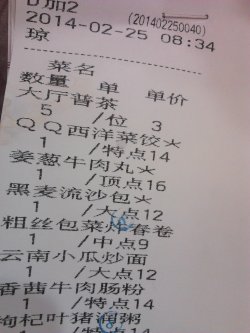 D加2
(201402250040)
2014-02-25 08:34
琼
菜名
数量 单 单价
大厅普茶
5 /位 3
QQ西洋菜饺★
1 /特点14
姜葱牛肉丸★
1 /顶点16
黑麦流沙包★
1 /大点12
粗丝包菜炸春卷
1 /中点9
云南小瓜炒面
1 /大点12
香茜牛肉肠粉
1 /特点14
枸杞叶猪润粥
/特点14